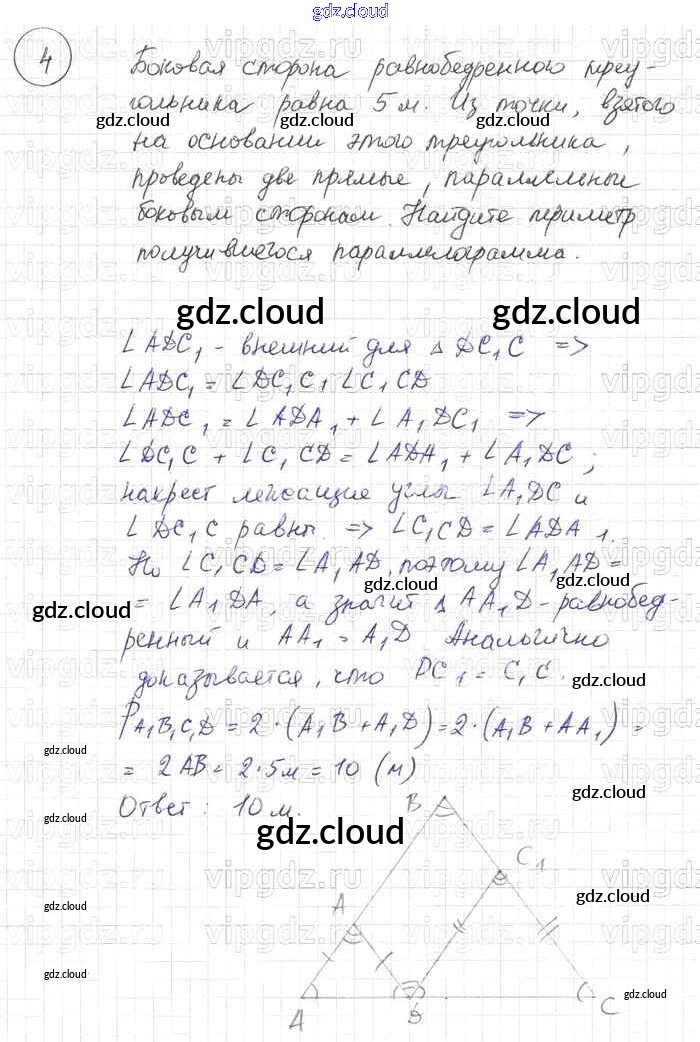 gdz.cloud
4
Боковая сторона равнобедренного треу-
гольника равна 5 м. Из точки, взятого
на основании этого треугольника,
проведены две прямые, параллельны
боковым сторонам. Найдите периметр
получившегося параллелограмма.
gdz.cloud gdz.cloud
∠ADC₁ - внешний для △ DC₁C =>
∠ADC₁ = ∠DC₁C + ∠C₁CD
∠ADC₁ = ∠ADA₁ + ∠A₁DC₁ =>
∠DC₁C + ∠C₁CD = ∠ADA₁ + ∠A₁DC;
накрест лежащие углы ∠A₁DC и
∠DC₁C равны. => ∠C₁CD = ∠ADA₁.
Но ∠C₁CD = ∠A₁AD, поэтому ∠A₁AD =
= ∠A₁DA, а значит △ AA₁D - равнобед-
ренный и AA₁ = A₁D. Аналогично
доказывается, что DC₁ = C₁C.
P A₁B₁C₁D = 2·(A₁B + A₁D) = 2·(A₁B + AA₁) =
= 2AB = 2·5м = 10 (м)
Ответ: 10 м.
gdz.cloud
B
C₁
A
A
D
C
gdz.cloud